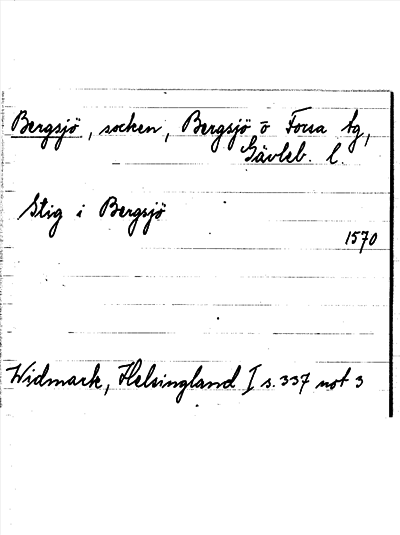 Bergsjö, socken, Bergsjö o Forsa tg,
Gävleb. l.
Stig i Bergsjö
1570
Widmark, Helsingland I s. 337 not 3